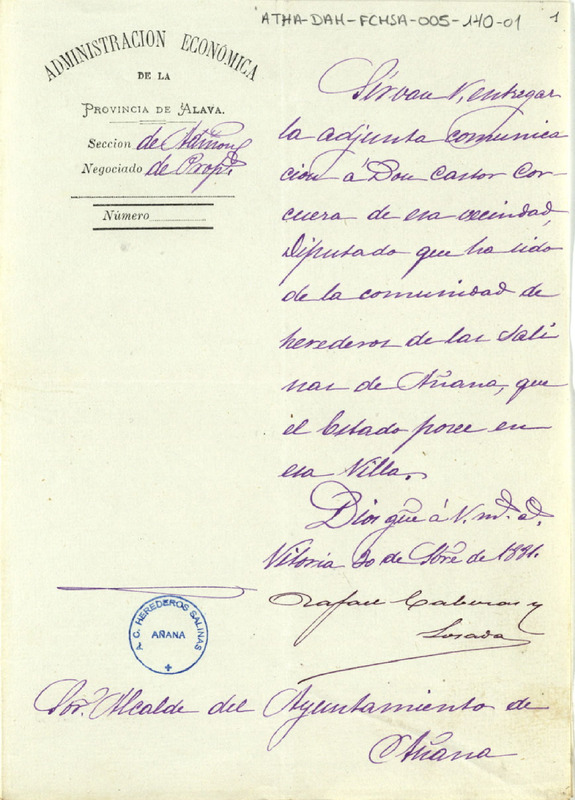 ATHA-DAH-FCHSA-005-140-01
1
ADMINISTRACION ECONÓMICA
DE LA
PROVINCIA DE ALAVA.
Seccion de Admon
Negociado de Propd.
Número
Sirvase V. entregar
la adjunta comunica
cion á Don Castor Cor
cuera de esa vecindad,
Diputado que ha sido
de la comunidad de
herederos de las Sali
nas de Añana, que
el Estado posee en
esa Villa.
Dios gue á V. ms. as.
Vitoria 20 de Sbre de 1881.
Rafael Cabezas y
Losada
A. C. HEREDEROS SALINAS
AÑANA
Sor. Alcalde del Ayuntamiento de
Añana